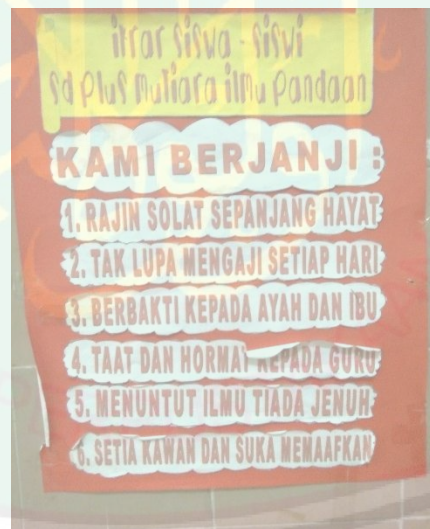 ikrar siswa - siswi
sd plus mutiara ilmu pandaan
KAMI BERJANJI :
1. RAJIN SOLAT SEPANJANG HAYAT
2. TAK LUPA MENGAJI SETIAP HARI
3. BERBAKTI KEPADA AYAH DAN IBU
4. TAAT DAN HORMAT KEPADA GURU
5. MENUNTUT ILMU TIADA JENUH
6. SETIA KAWAN DAN SUKA MEMAAFKAN